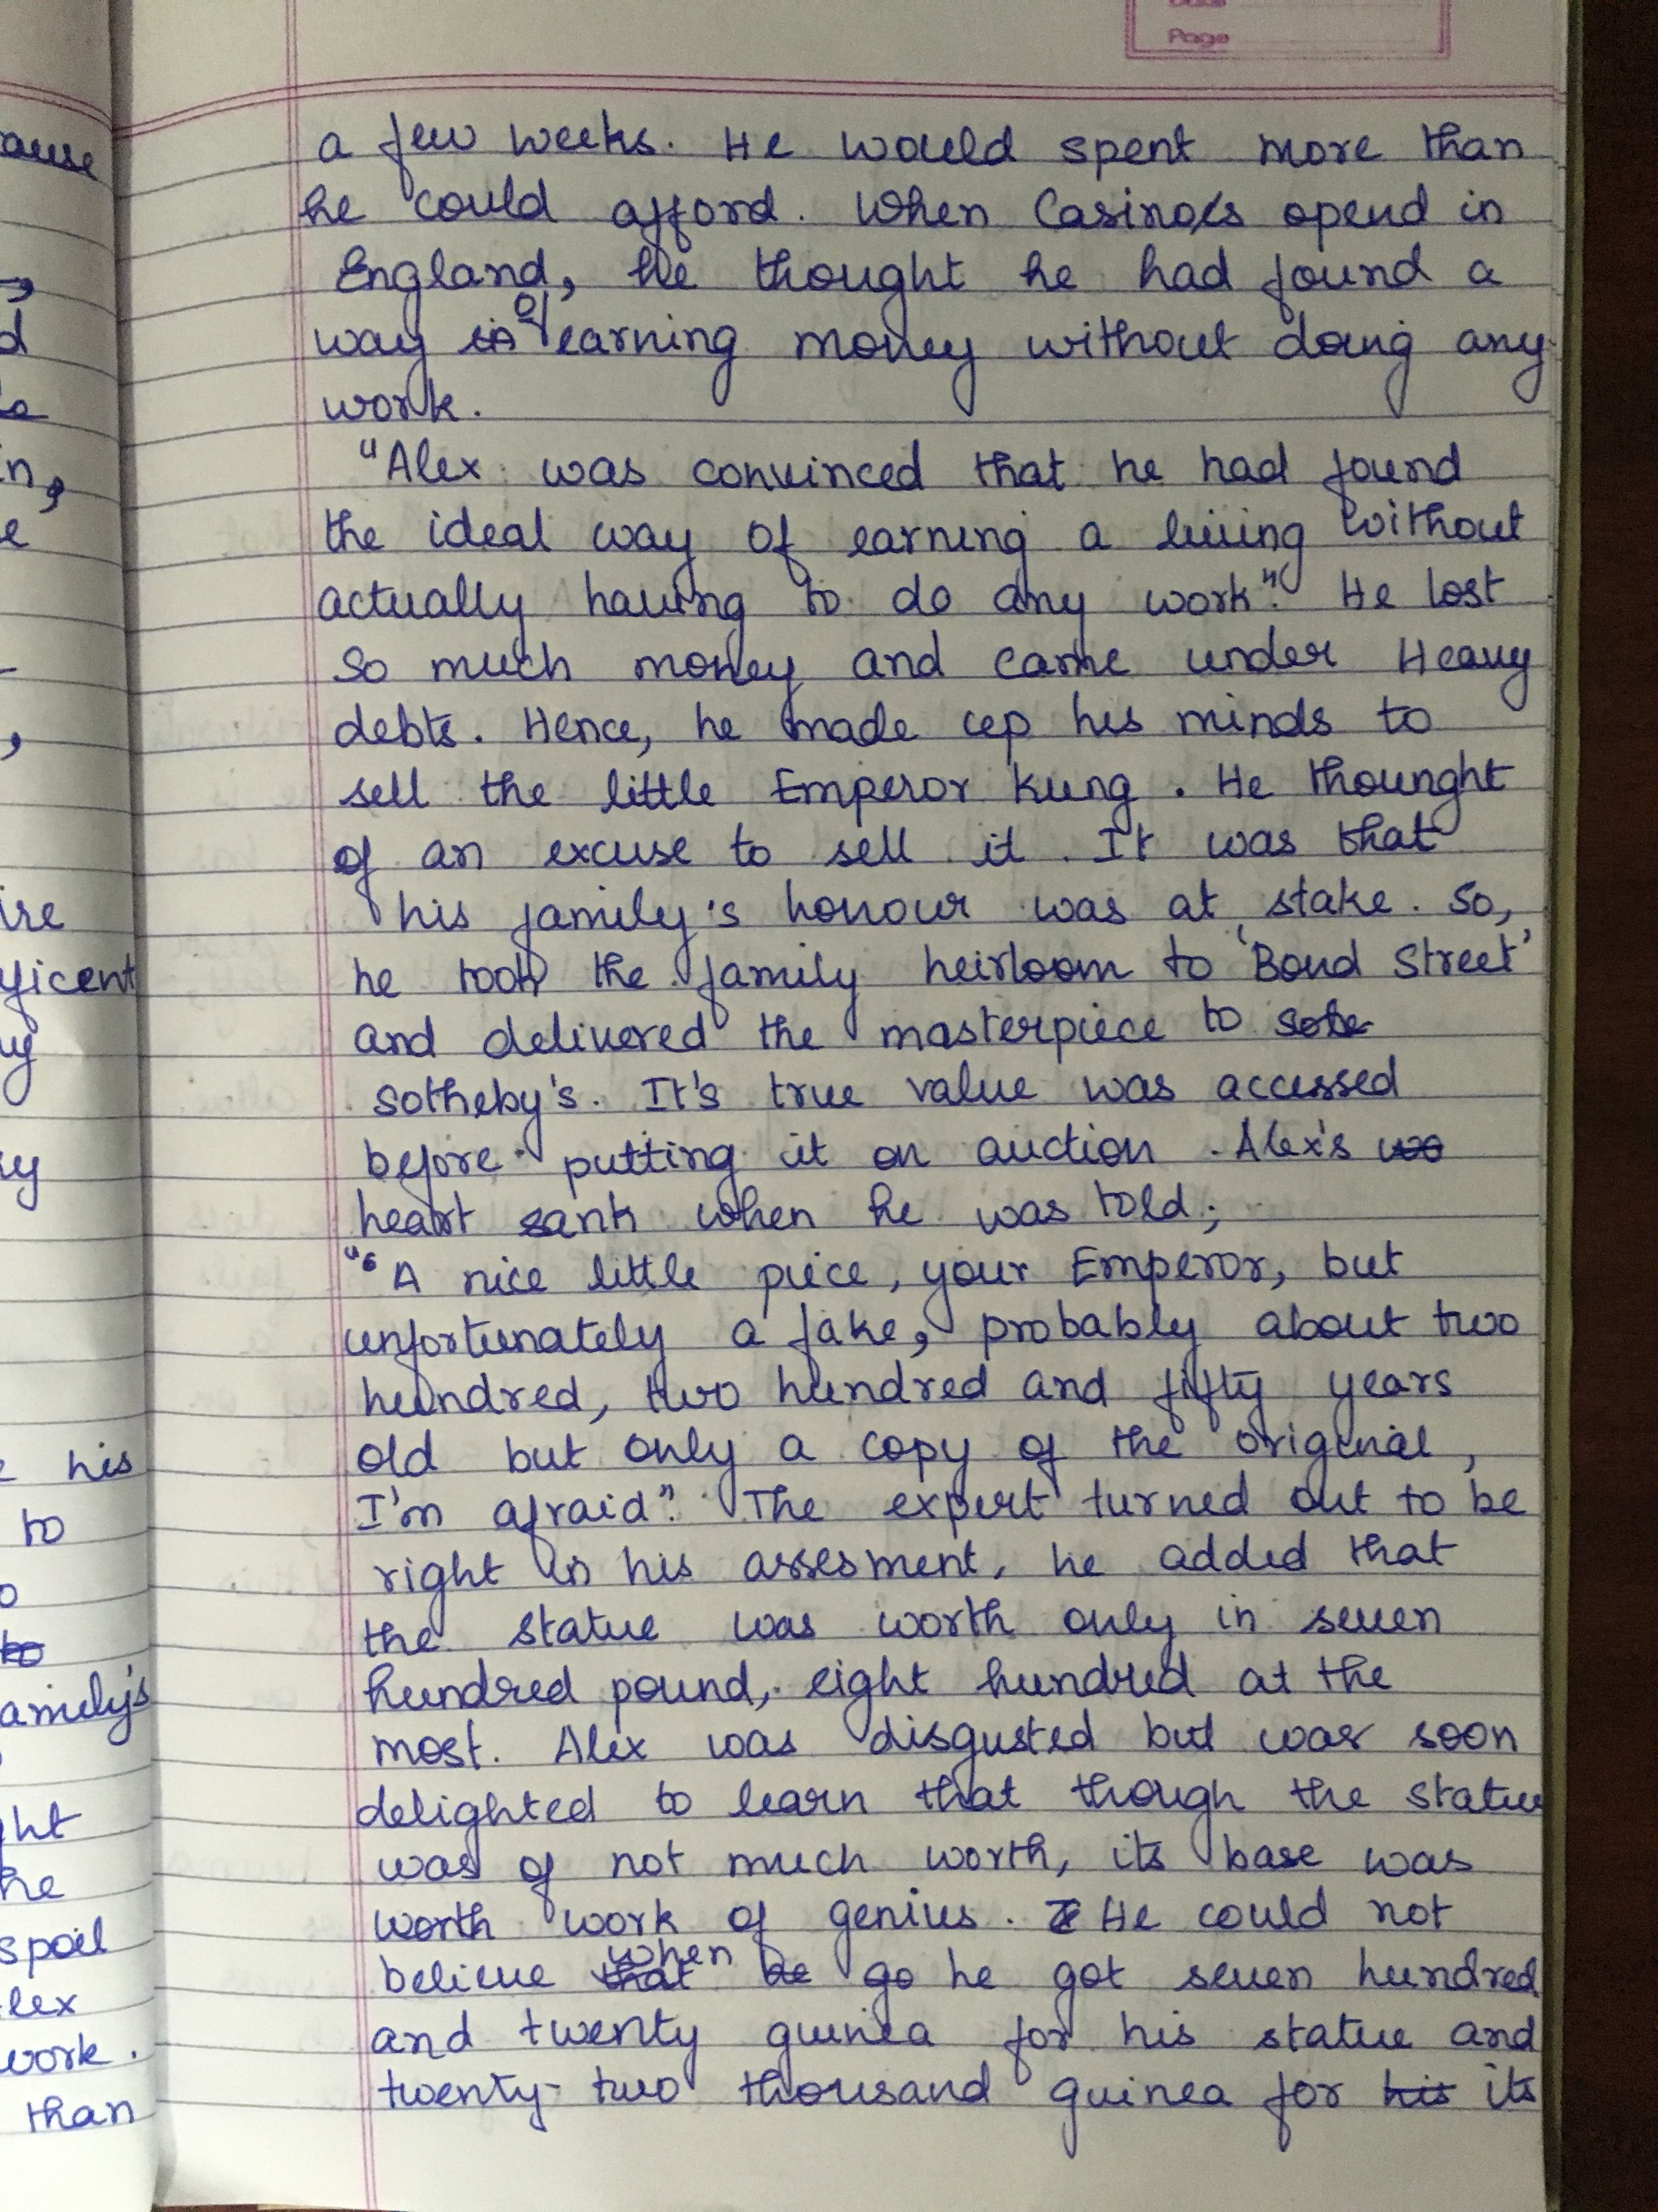 Page
a few weeks. He would spent more than
he could afford. When Casino's opend in
England, he thought he had found a
way of earning money without doing any
work.
"Alex was convinced that he had found
the ideal way of earning a living without
actually having to do any work". He lost
so much money and came under Heavy
debts. Hence, he made up his minds to
sell the little Emperor Kung. He thounght
of an excuse to sell it. It was that
his family's honour was at stake. So,
he took the family heirloom to 'Bond Street'
and delivered the masterpiece to
Sotheby's. It's true value was accessed
before putting it on auction. Alex's
heart sank when he was told;
"‘A nice little piece, your Emperor, but
unfortunately a fake, probably about two
hundred, two hundred and fifty years
old but only a copy of the original,
I'm afraid". The expert turned out to be
right in his assesment, he added that
the statue was worth only in seven
hundred pound, eight hundred at the
most. Alex was disgusted but was soon
delighted to learn that though the statue
was of not much worth, its base was
worth work of genius. He could not
believe when he got seven hundred
and twenty guinea for his statue and
twenty-two thousand guinea for its
ause
d
in,
e
ire
ficent
y
his
to
to
amily's
ght
he
spoil
lex
work.
than